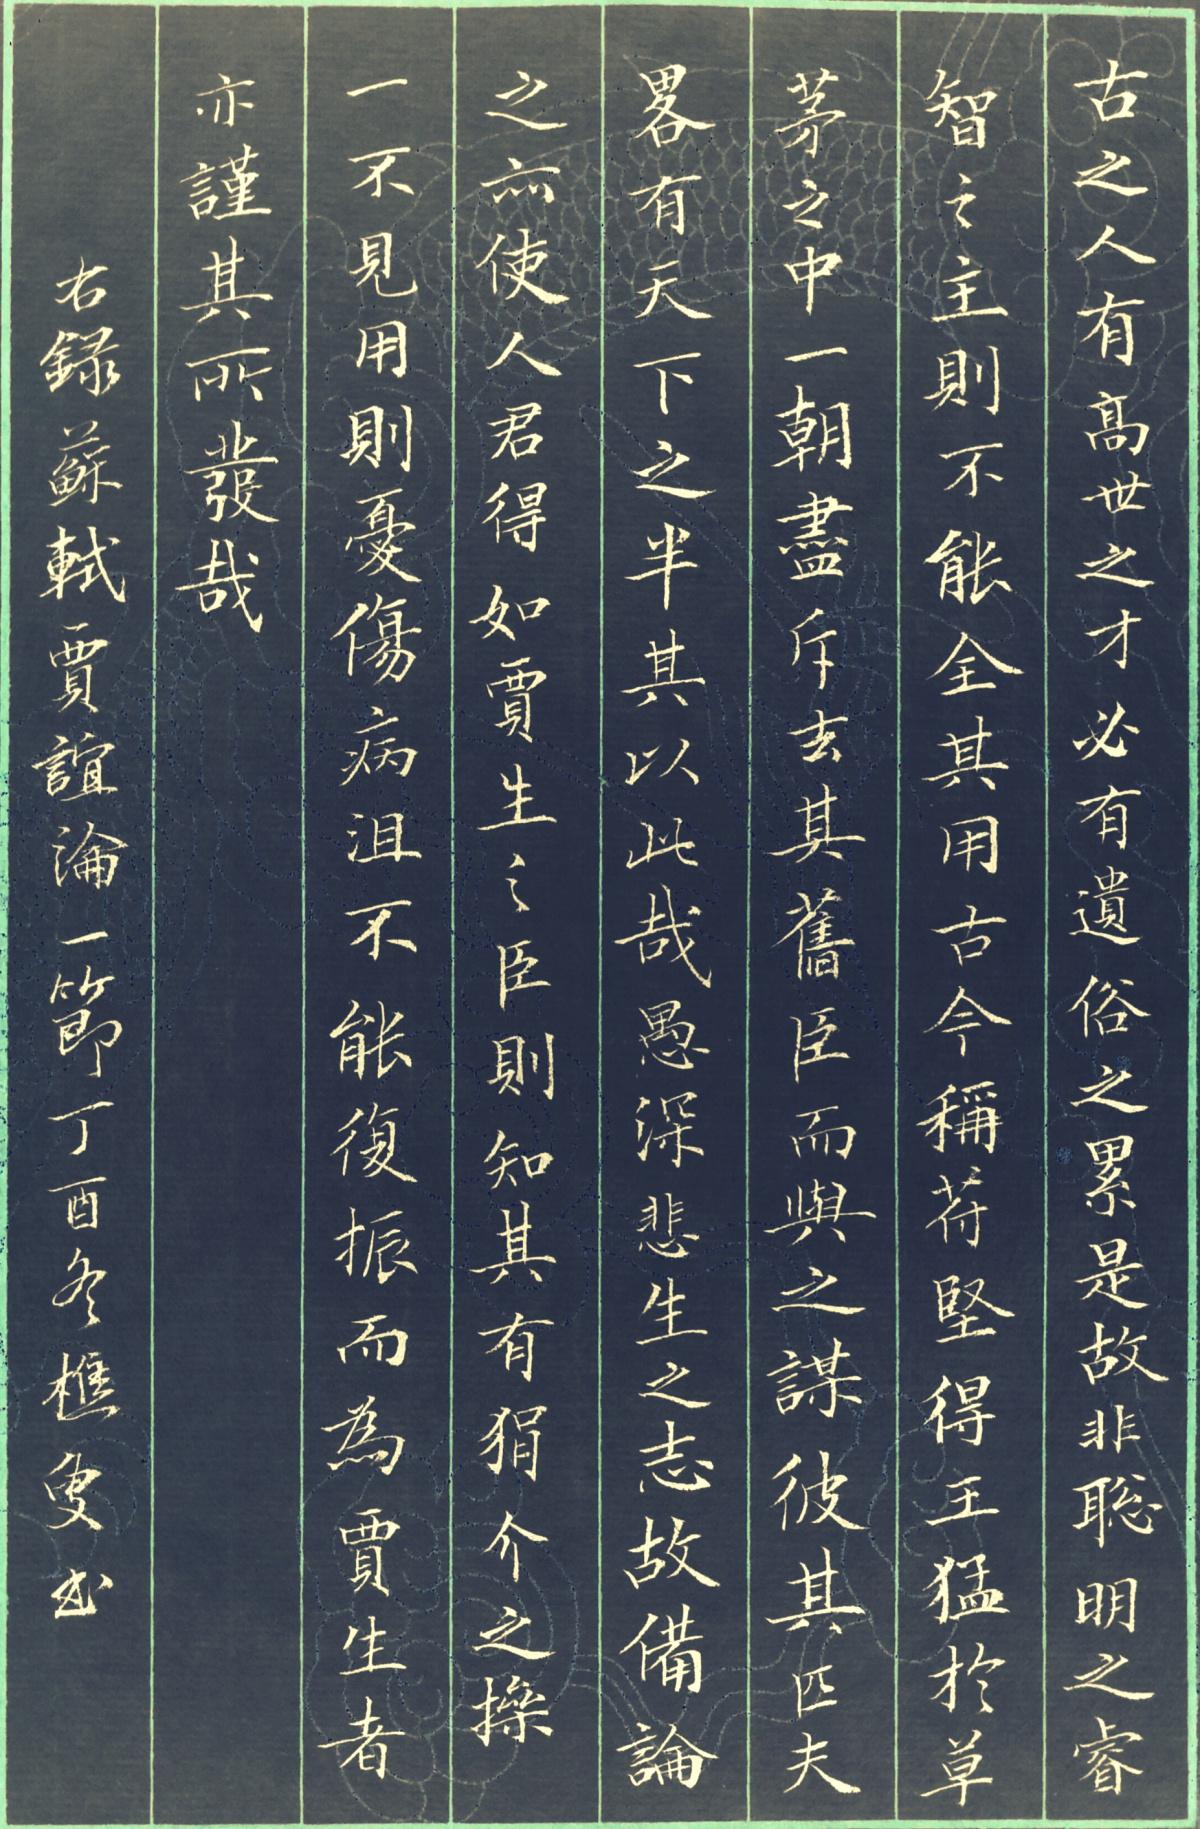 古之人有高世之才必有遺俗之累是故非聡明之睿
智之主則不能全其用古今稱苻堅得王猛於草
茅之中一朝盡斥去其舊臣而與之謀彼其匹夫
畧有天下之半其以此哉愚深悲生之志故備論
之亦使人君得如賈生之臣則知其有狷介之操
一不見用則憂傷病沮不能復振而為賈生者
亦謹其所發哉
右録蘇軾賈誼論一節丁酉冬樵叟书